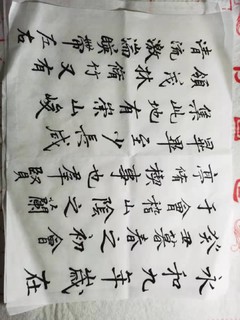 永和九年歲在
癸丑暮春之初會
于會稽山陰之蘭
亭脩禊事也群賢
畢至少長咸
集此地有崇山峻
領茂林脩竹又有
清流激湍暎帶左右